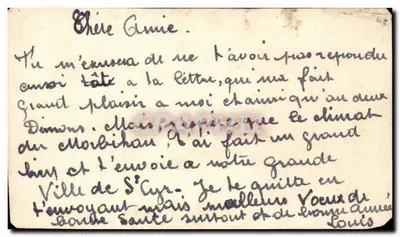 Chère Amie.
Tu m'excusera de ne t'avoir pas repondu
aussi tât a la lettre, qui ma fait
grand plaisir a moi et ainsi qu'au deux
Demons. Mais j'espère que le climat
du Morbihan t'ai fait un grand
bien et t'envoie a notre grande
Ville de St Cyr. Je te quitte en
t'envoyant mais meilleurs Voeux de
bonne Santé surtout et de bonne année
Louis